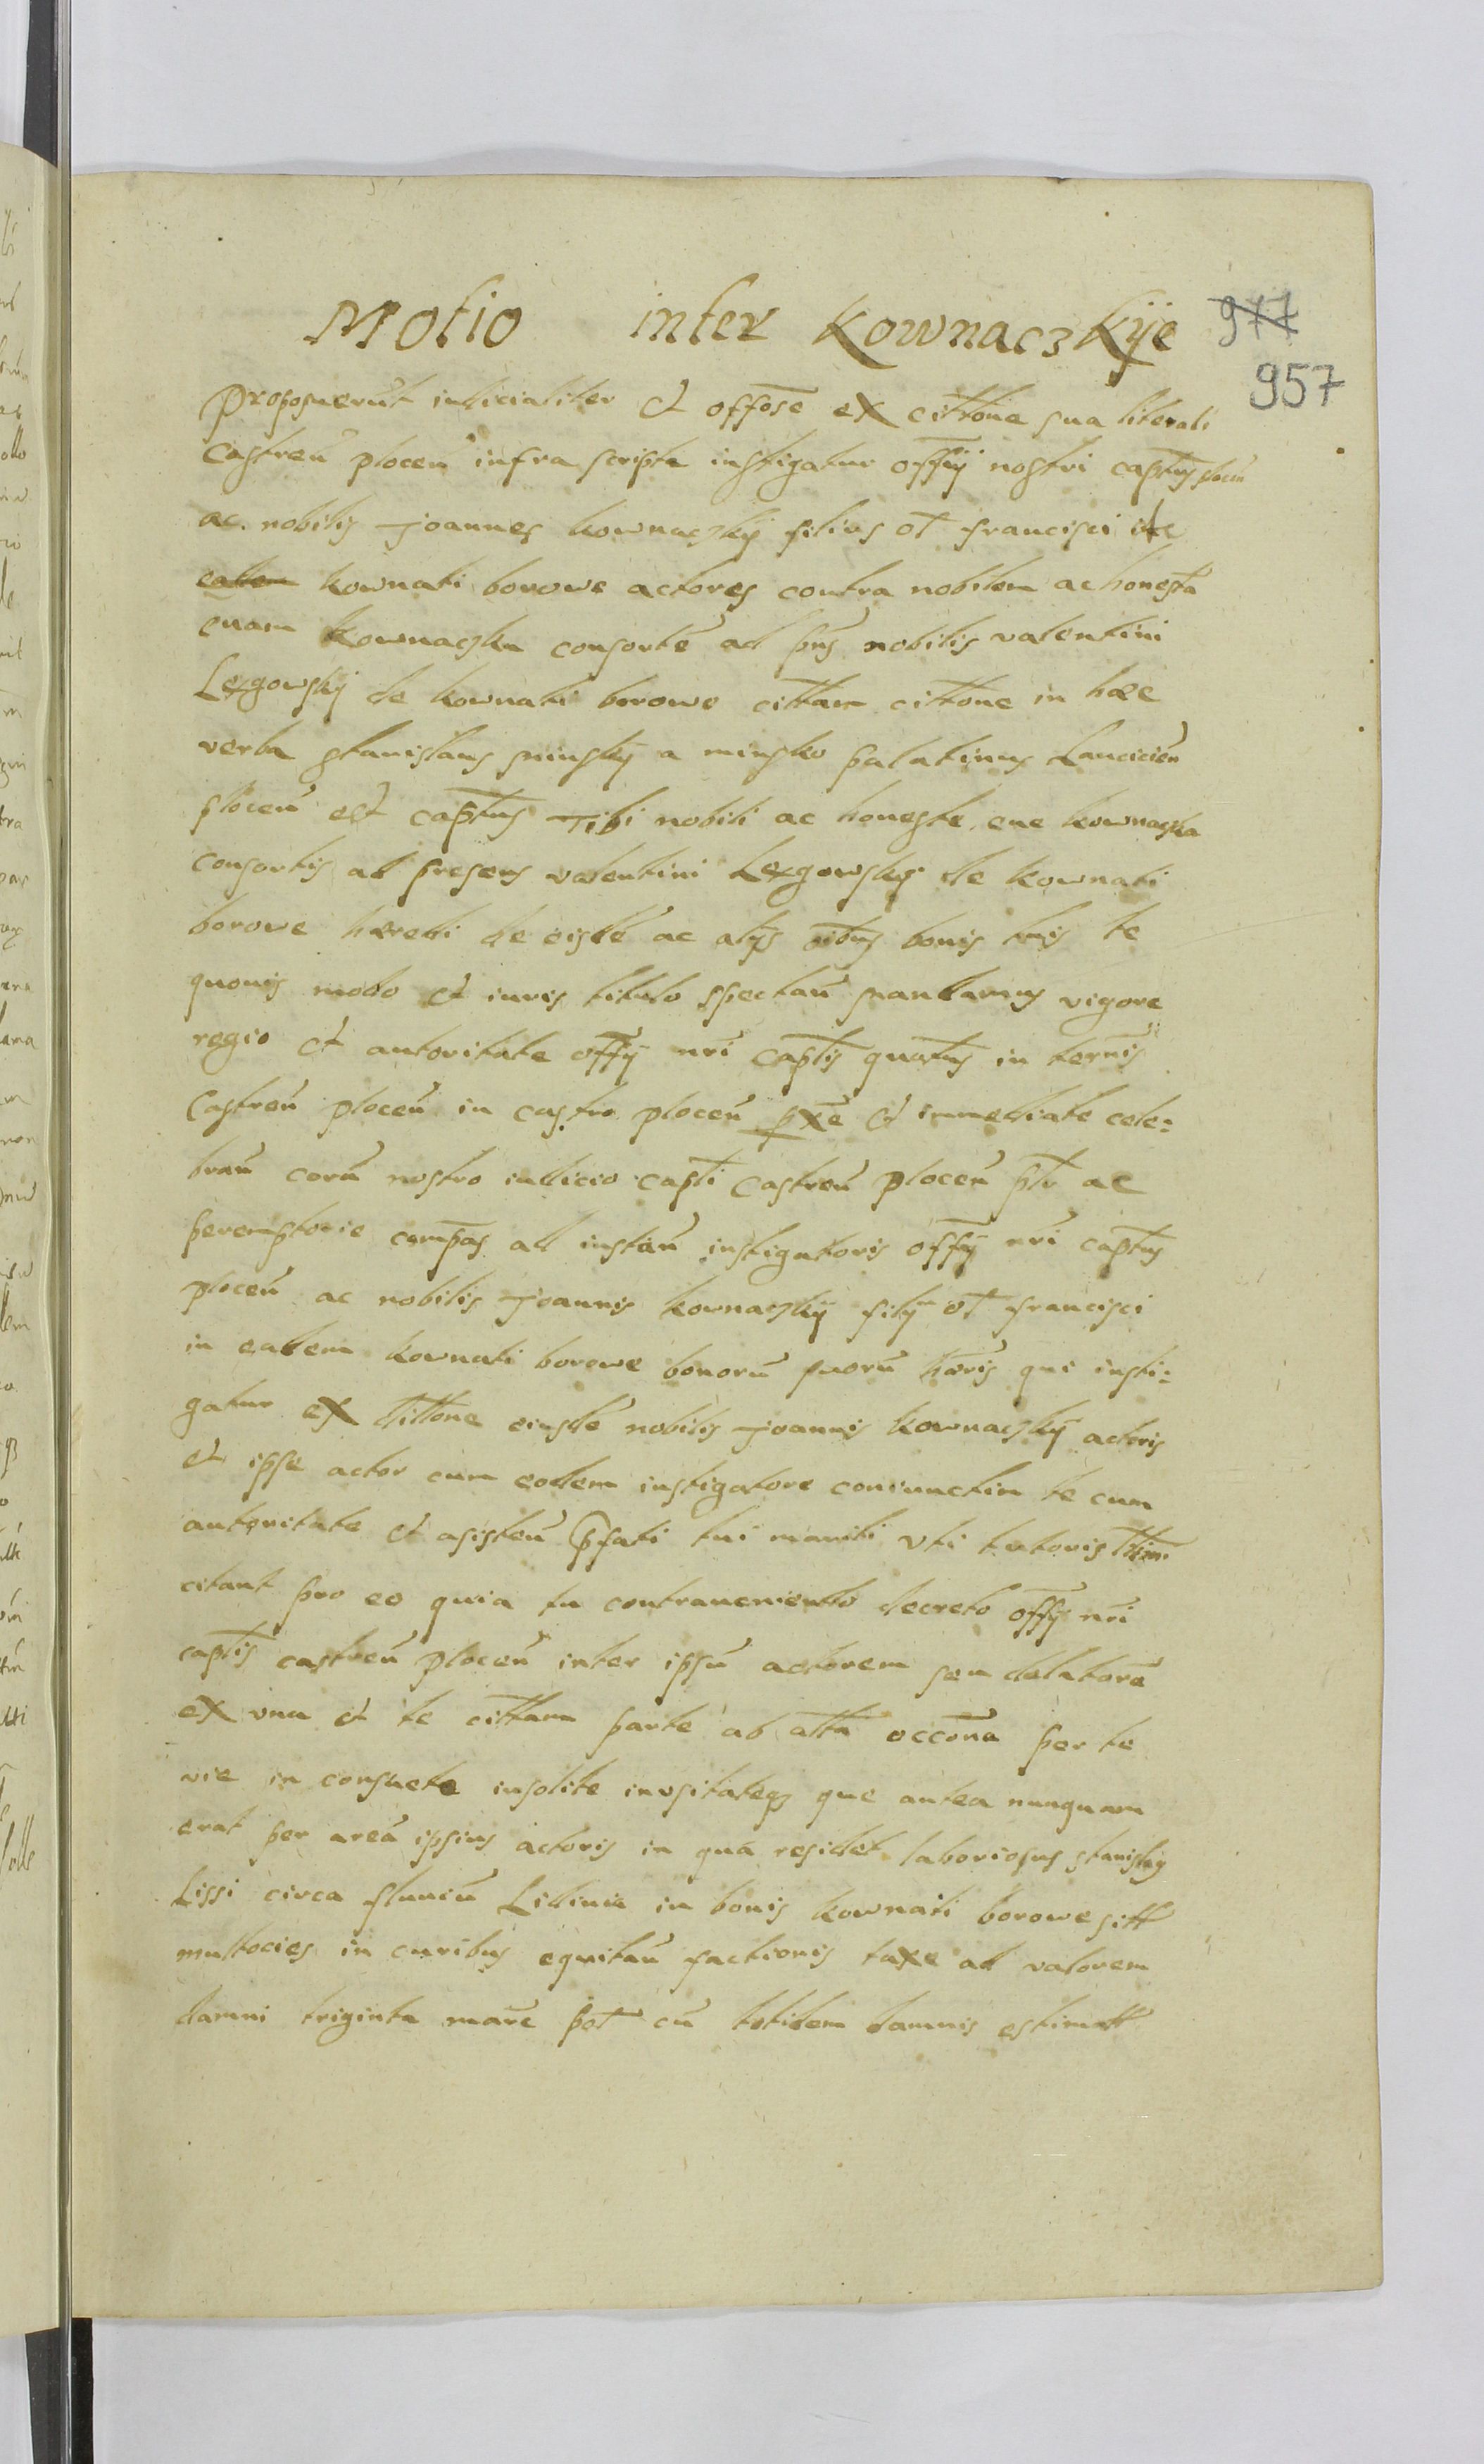 Motio inter Kownaczkije 977
957
proposuerūt iudicialiter et offose ex cittōne sua literali
Castreñ ploceñ infra scripta instigator offij nostri captus ploceñ
ac nobilis Joannes kownaczkij filius ol francisci de
kownati borowe actores contra nobilem ac honestā
evam kownaczka consortē ad pn̄s nobilis valentini
Lezgowskij de kownati borowe cittam cittone in hæc
verba stanislaus minskij a minsko palatinus Lanciciēn
ploceñ et captus Tibi nobili ac honeste eue kownaczka
consortis ad presens valentini Lezgowskij de kownati
borowe hæredi de eisdē ac alijs oībus bonis tuis te
quouis modo et iuris titulo spectañ mandamus vigore
regio et autoritate offij nrī captis quatus in termīs
Castreñ ploceñ in castro ploceñ pxē et immediate cele:
brañ corā nostro iudicio capti castreñ ploceñ ptr ac
peremptorie compas ad instañ instigatoris offij nrī captus
ploceñ ac nobilis Joannis kownaczkij filij ol francisci
in eadem kownati borowe bonorū suorū hæris qui insti:
gatur ex dittone eiusdē nobilis Joannis kownaczkij actoris
et ipse actor cum eodem instigatore coniunctim te cum
autoritate et asisteñ pfati tui mariti vti tutoris
citant pro eo quia tu contraueniendo decreto offij nrī
captis castreñ ploceñ inter ipsū actorem seu delatorē
ex vna et te cittam parte ab altā occōna per te
vie in consuete insolite inusitateqz que antea nunquam
erat per areā ipsius actoris in qua residet laboriosus stanislaus
Lissi circa fluuiū Lidinia in bonis kownati borowe sitt
multocies in curibus equitañ factionis taxe ad valorem
damni triginta marc pol cū totidem damnis estimatt